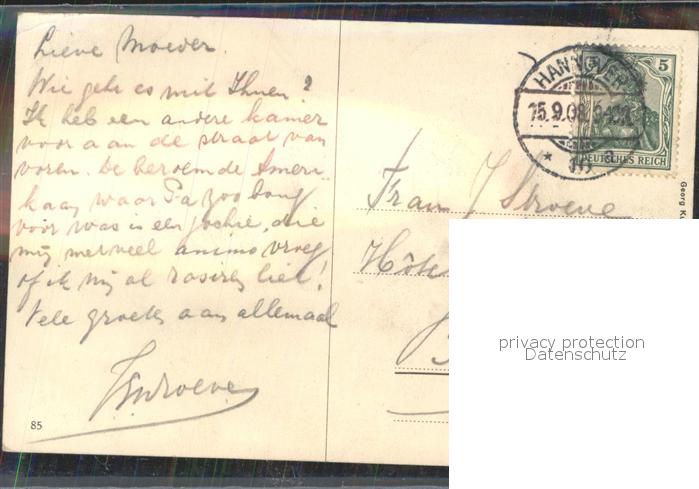 Lieve Moeder.
Wie geht es mit Ihnen?
Ik heb een andere kamer
voor aan de straat van
voren. De beroemde Ameri-
kaan waar Pa zoo bang
voor was is een jochie, die
mij met veel animo vroeg
of ik mij al rasiren liet!
Vele groeten aan allemaal
JStroeve
85
HANNOVER
15.9.08.
5
DEUTSCHES REICH
Georg
Frau J Stroeve
Hôtel
privacy protection
Datenschutz